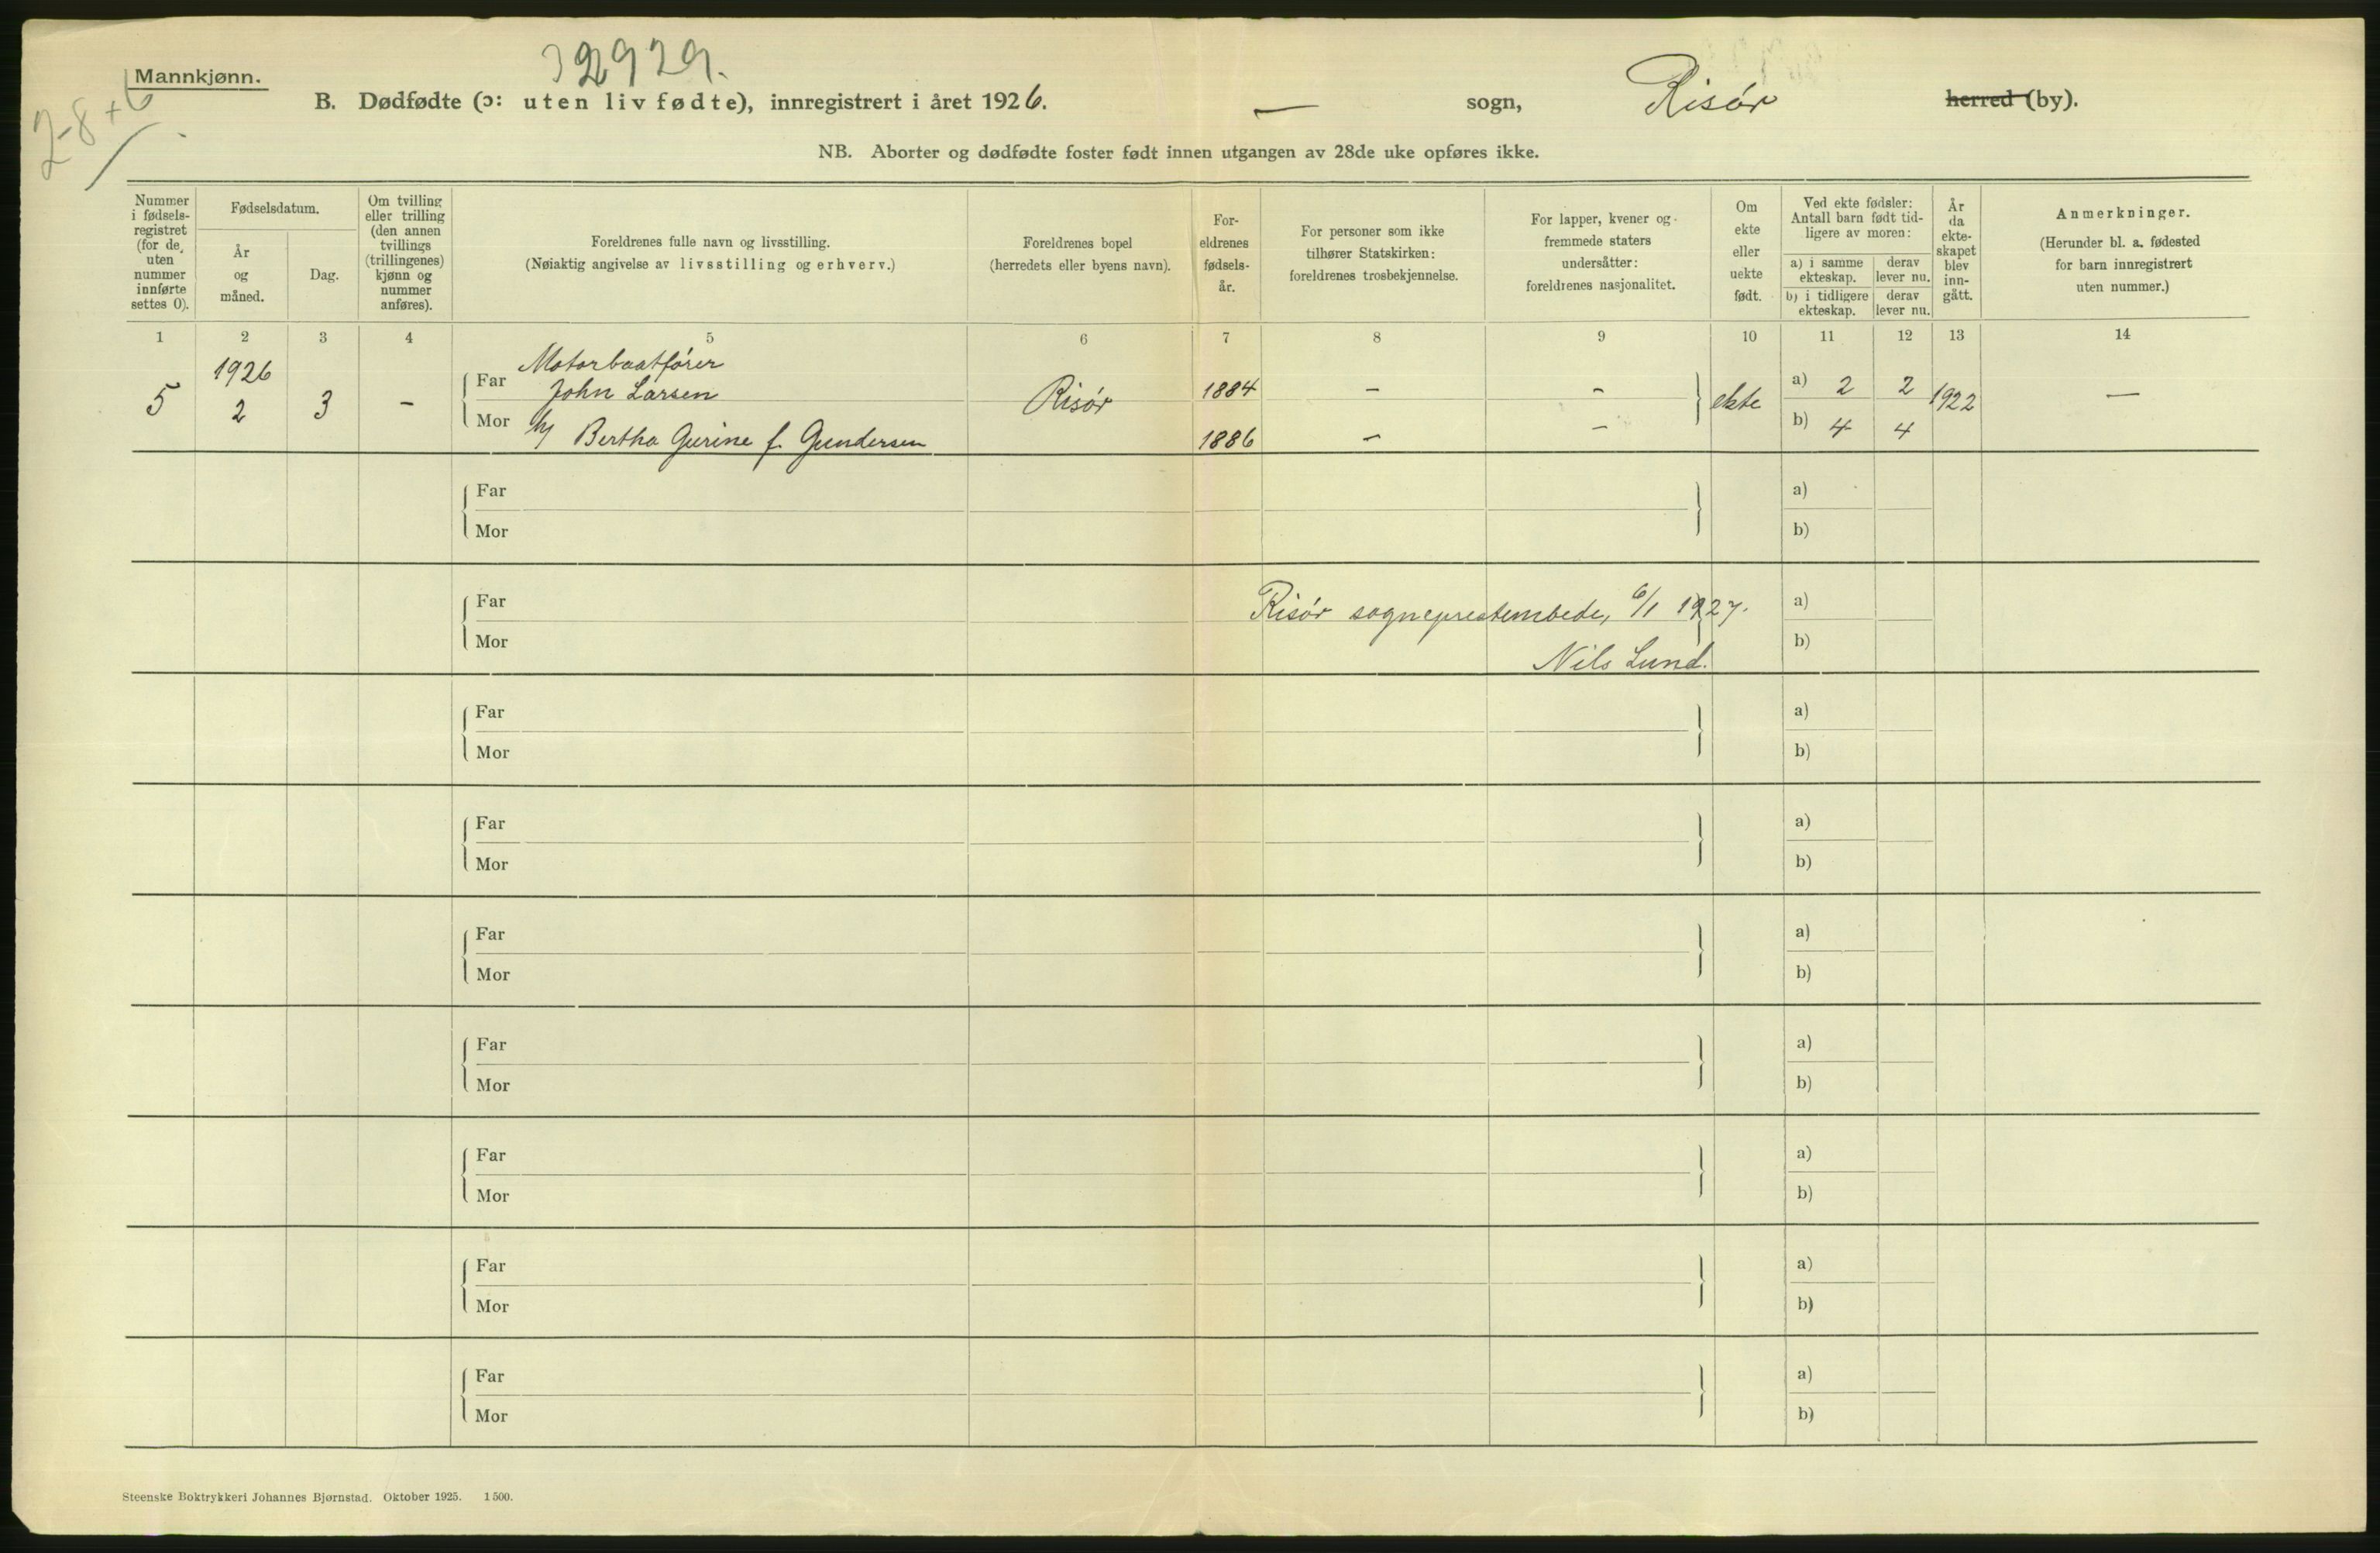 32929.
Mannkjønn.
2-8+6
B. Dødfødte (ɔ: uten liv fødte), innregistrert i året 1926. — sogn, Risör herred (by).
NB. Aborter og dødfødte foster født innen utgangen av 28de uke opføres ikke.
Nummer i fødsels- registret (for de uten nummer innførte settes 0).
Fødselsdatum.
År og måned.
Dag.
Om tvilling eller trilling (den annen tvillings (trillingenes) kjønn og nummer anføres).
Foreldrenes fulle navn og livsstilling.
(Nøiaktig angivelse av livsstilling og erhverv.)
Foreldrenes bopel
(herredets eller byens navn).
For- eldrenes fødsels- år.
For personer som ikke tilhører Statskirken: foreldrenes trosbekjennelse.
For lapper, kvener og fremmede staters undersåtter: foreldrenes nasjonalitet.
Om ekte eller uekte født.
Ved ekte fødsler: Antall barn født tid- ligere av moren:
a) i samme ekteskap.
derav lever nu.
b) i tidligere ekteskap.
derav lever nu.
År da ekte- skapet blev inn- gått.
Anmerkninger.
(Herunder bl. a. fødested for barn innregistrert uten nummer.)
1 2 3 4 5 6 7 8 9 10 11 12 13 14
1926 Motorbaatfører
5 2 3 – Far John Larsen Risör 1884 – – ekte a) 2 2 1922 —
Mor h/ Bertha Gurine f. Gundersen 1886 – – b) 4 4
Far a)
Mor b)
Far Risör sogneprestembede, 6/1 1927. a)
Mor Nils Lund. b)
Far a)
Mor b)
Far a)
Mor b)
Far a)
Mor b)
Far a)
Mor b)
Far a)
Mor b)
Far a)
Mor b)
Far a)
Mor b)
Steenske Boktrykkeri Johannes Bjørnstad. Oktober 1925. 1500.